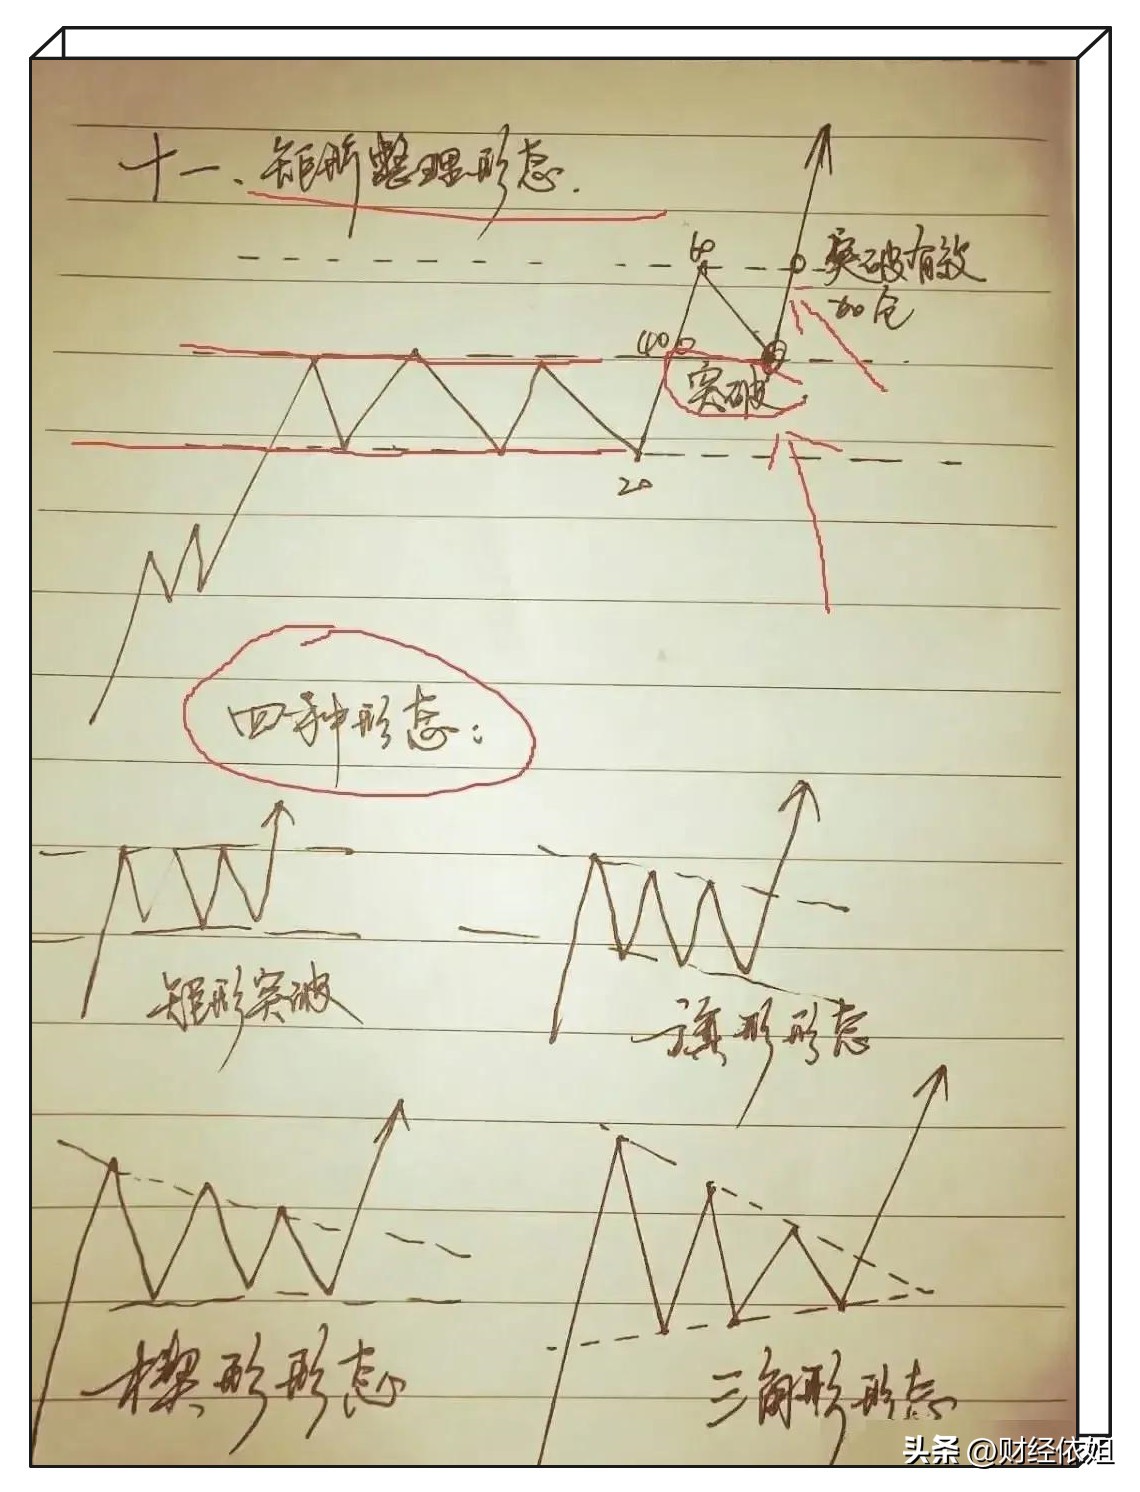 十一、矩形整理形态.
60
突破有效
加仓
40
突破.
20
四种形态:
矩形突破
旗形形态
楔形形态
三角形形态
头条 @财经依姐